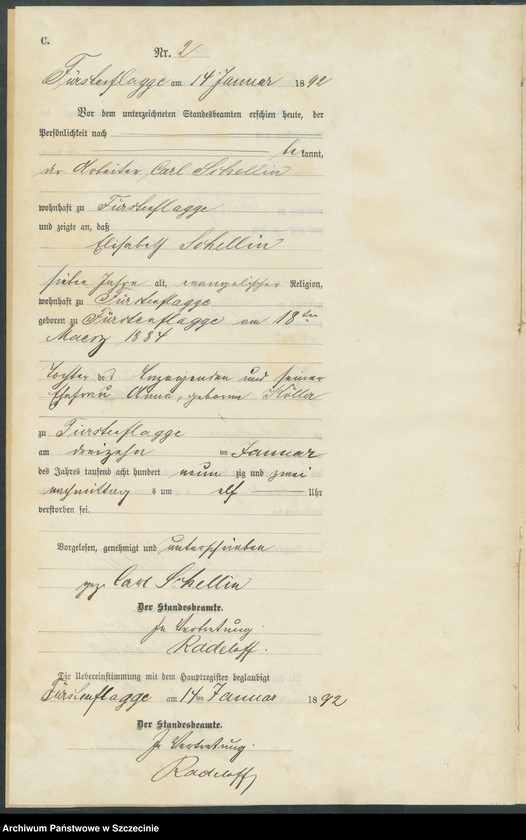 C.
Nr. 2
Fürstenflagge am 14 Januar 1892
Vor dem unterzeichneten Standesbeamten erschien heute, der
Persönlichkeit nach
bekannt,
der Arbeiter Carl Schellin
wohnhaft zu Fürstenflagge
und zeigte an, daß
Elisabeth Schellin
sieben Jahre alt, evangelischer Religion,
wohnhaft zu Fürstenflagge
geboren zu Fürstenflagge am 18ten
Maerz 1884
Tochter des Anzeigenden und seiner
Ehefrau Anna, geborene Köller
zu Fürstenflagge
am dreizehn im Januar
des Jahres tausend acht hundert neunzig und zwei
nachmittags um elf Uhr
verstorben sei.
Vorgelesen, genehmigt und unterschrieben
gez. Carl Schellin
Der Standesbeamte.
In Vertretung.
Radeloff.
Die Uebereinstimmung mit dem Hauptregister beglaubigt
Fürstenflagge am 14ten Januar 1892
Der Standesbeamte.
In Vertretung.
Radeloff
Archiwum Państwowe w Szczecinie